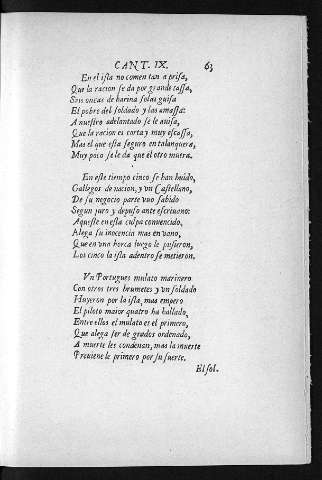 CANT. IX. 63
En el isla no comen tan a prisa,
Que la racion se da por grande tassa,
Seis onças de harina solas guisa
El pobre del soldado y las amassa:
A nuestro adelantado se le auisa,
Que la racion es corta y muy escassa,
Mas el que esta seguro en talanquera,
Muy poco se le da que el otro muera.
En este tiempo cinco se han huido,
Gallegos de nacion, y vn Castellano,
De su negocio parte vuo sabido
Segun juro y depuso ante escriuano:
Aqueste en esta culpa conuencido,
Alega su inocencia mas en vano,
Que en vna horca luego le pusieron,
Los cinco la isla adentro se metieron.
Vn Portugues mulato marinero
Con otros tres brumetes y vn soldado
Huyeron por la isla, mas empero
El piloto maior quatro ha hallado,
Entre ellos el mulato es el primero,
Que alega ser de grados ordenado,
A muerte les condenan, mas la muerte
Preuiene le primero por su suerte.
El sol.